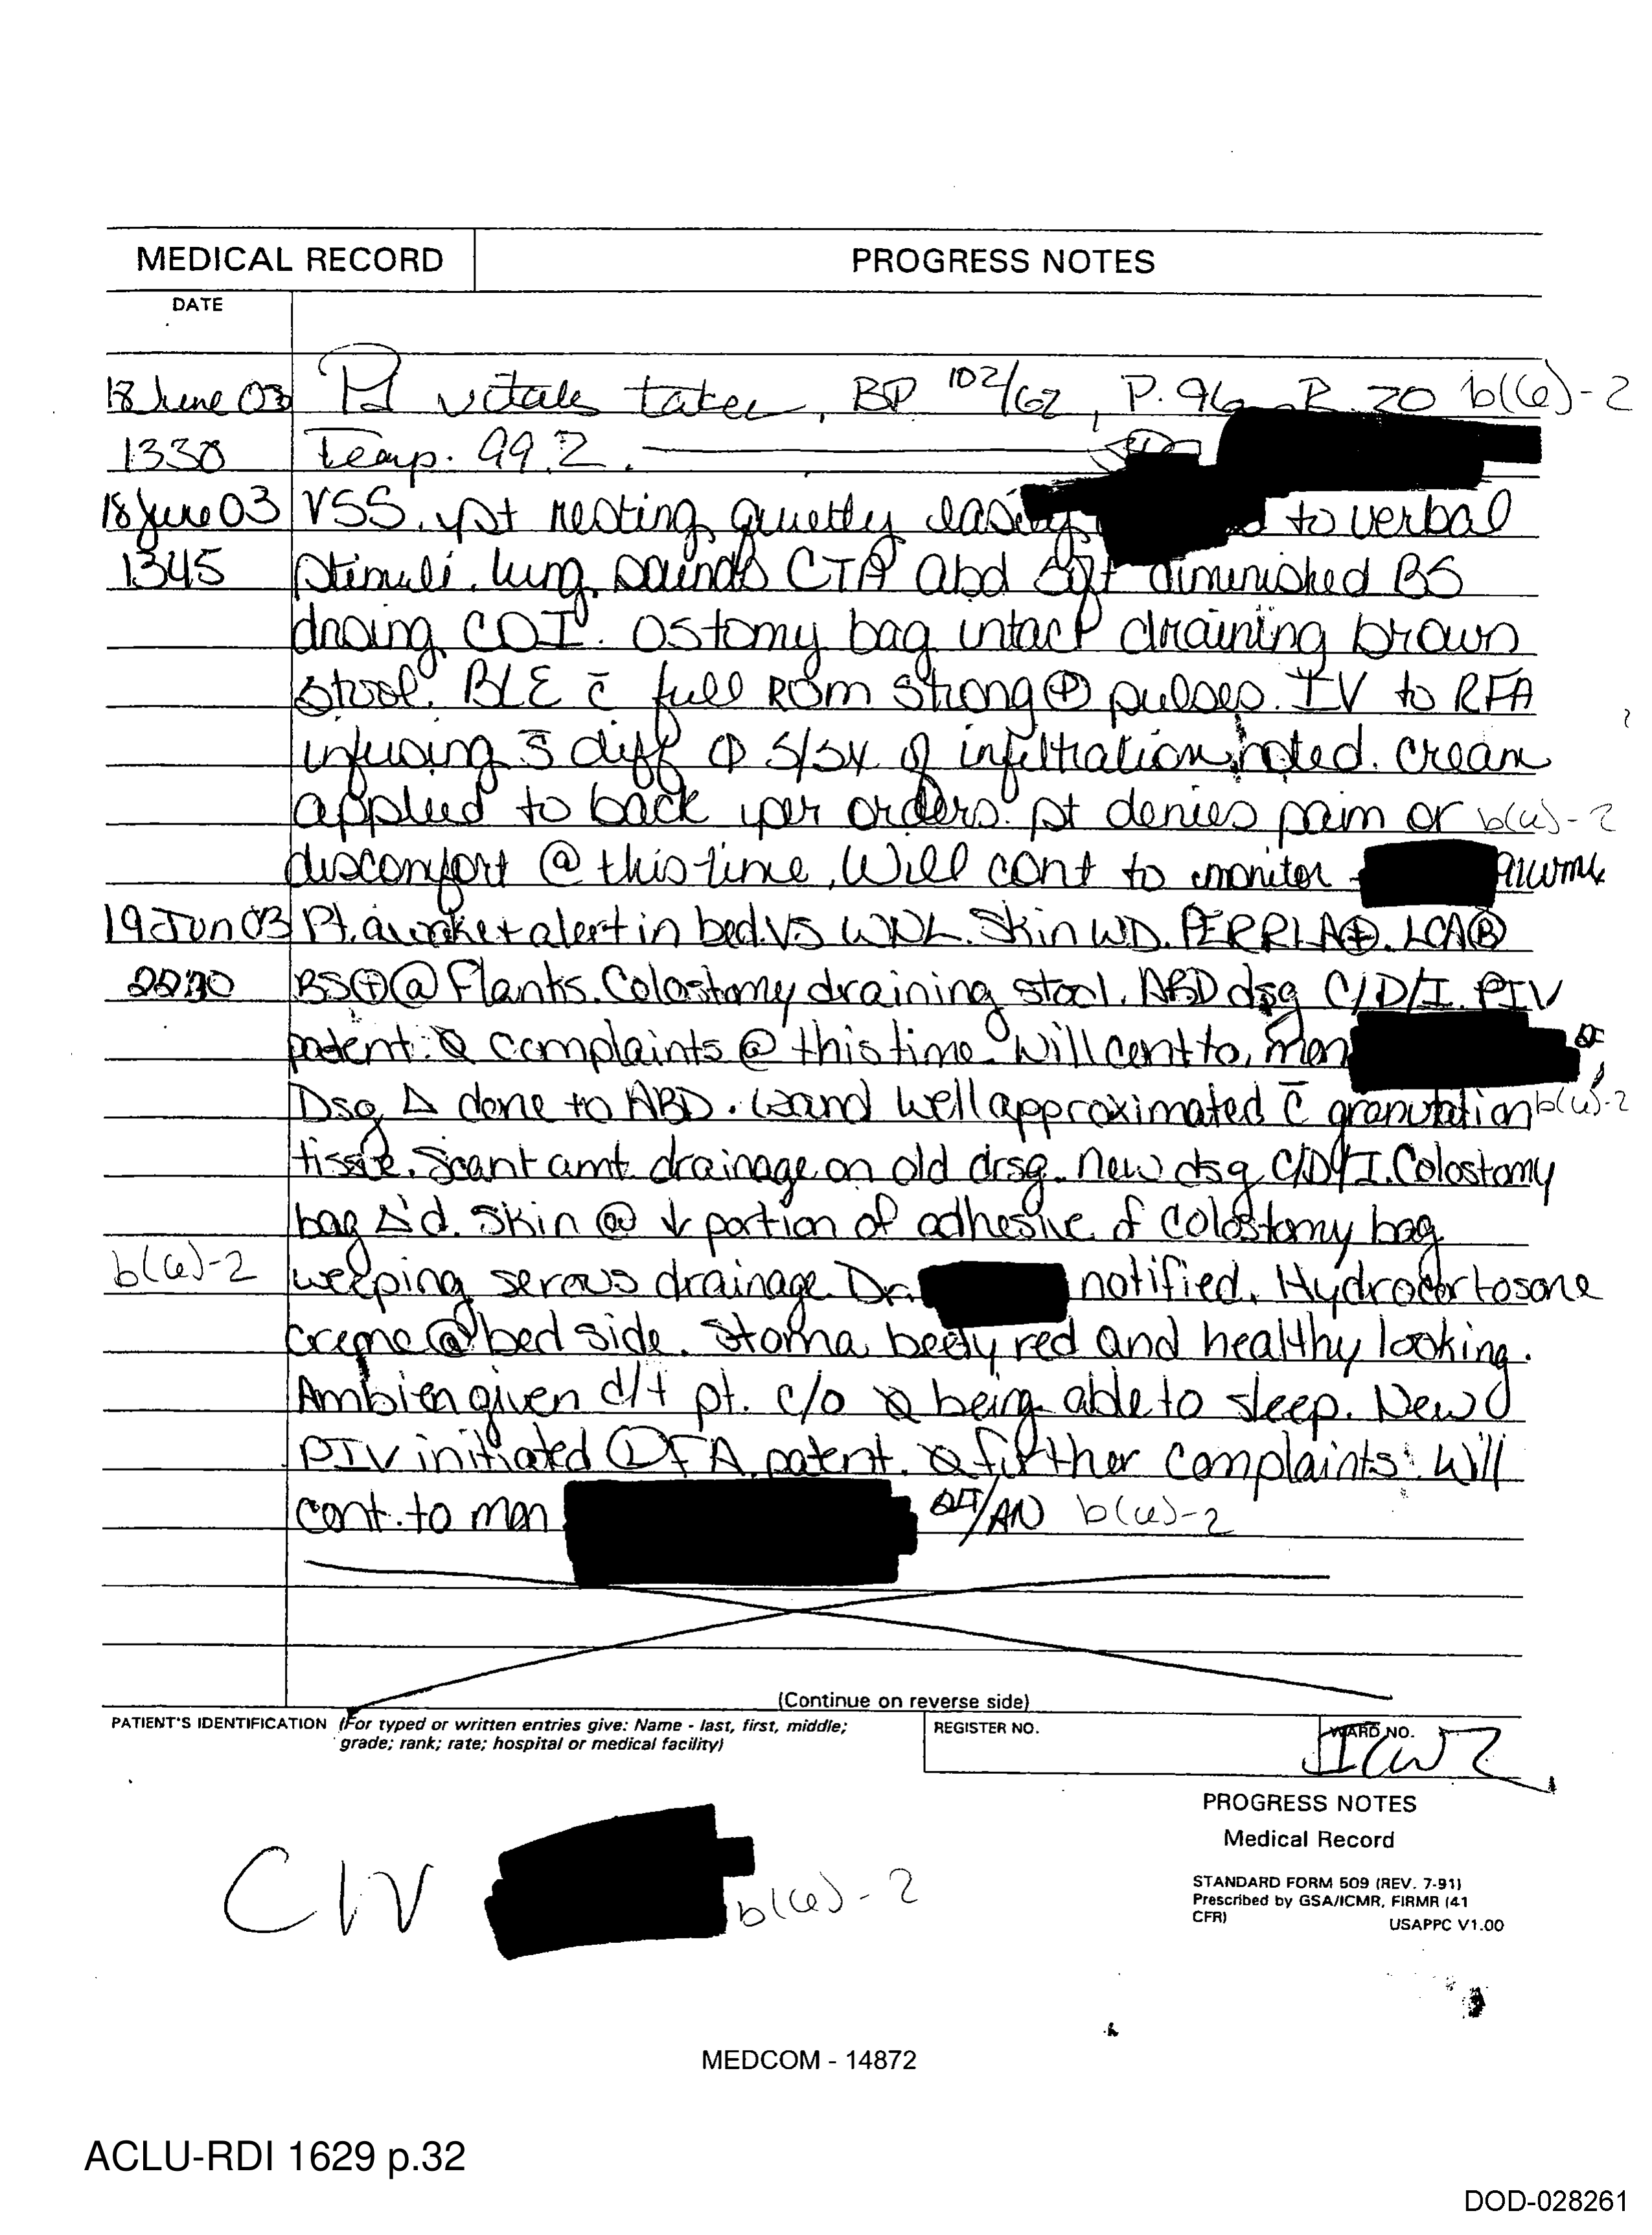 MEDICAL RECORD
PROGRESS NOTES
DATE
18 June 03 Pt vitals taken, BP 102/62, P. 96 R. 20 b(6)-2
1330 Temp. 99.2.
18 June 03 VSS. pt resting quietly easily to verbal
1345 stimuli. lung sounds CTA abd soft diminished BS
drsing CDI. Ostomy bag intact draining brown
stool. BLE c̄ full ROM strong ⊕ pulses. IV to RFA
infusing s̄ diff Φ S/Sx of infiltration noted. cream
applied to back per orders. pt denies pain or b(6)-2
discomfort @ this time. Will cont to monitor - 91WM6
19 Jun 03 Pt. awake + alert in bed. VS WNL. Skin WD. PERRLA ⊕. LCA Ⓑ
BS ⊕ @ Flanks. Colostomy draining stool. ABD dsg C/D/I. PIV
patent. Ø complaints @ this time. Will cont to mon
Dsg Δ done to ABD. Wound well approximated c̄ granulation b(6)-2
tissue. Scant amt. drainage on old drsg. New dsg C/D/I. Colostomy
bag Δ'd. Skin @ ↓ portion of adhesive of colostomy bag
b(6)-2 weeping serous drainage. Dr. notified. Hydrocortosone
creme @ bedside. Stoma beefy red and healthy looking.
Ambien given d/t pt. c/o Ø being able to sleep. New
PIV initiated Ⓛ FA, patent. Ø further complaints. Will
cont. to mon /AN b(6)-2
(Continue on reverse side)
PATIENT'S IDENTIFICATION (For typed or written entries give: Name - last, first, middle;
grade; rank; rate; hospital or medical facility)
REGISTER NO.
WARD NO.
ICW 2
PROGRESS NOTES
Medical Record
STANDARD FORM 509 (REV. 7-91)
Prescribed by GSA/ICMR, FIRMR (41
CFR)
USAPPC V1.00
CIV b(6)-2
MEDCOM - 14872
ACLU-RDI 1629 p.32
DOD-028261